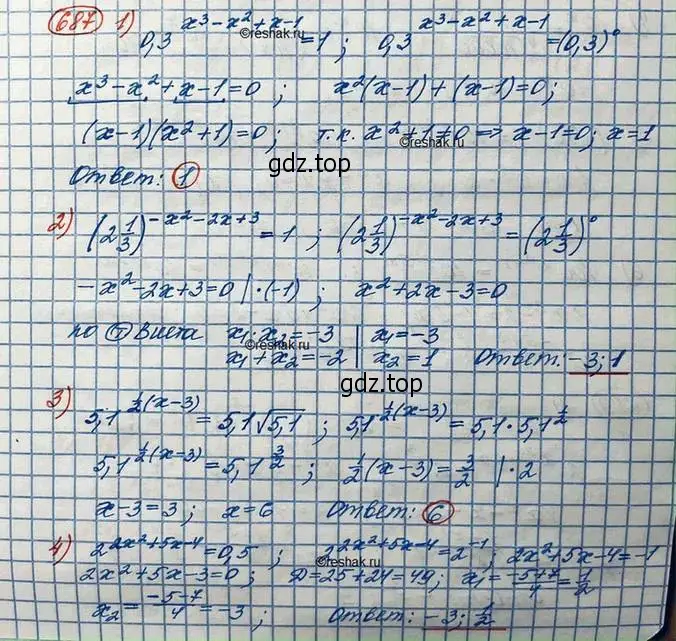 687 1) 0,3^(x³-x²+x-1) = 1 ; 0,3^(x³-x²+x-1) = (0,3)⁰
©reshak.ru
x³-x²+x-1=0 ; x²(x-1)+(x-1)=0;
(x-1)(x²+1)=0; т.к. x²+1≠0 => x-1=0; x=1
©reshak.ru
gdz.top
Ответ: 1
2) (2 1/3)^(-x²-2x+3) = 1 ; (2 1/3)^(-x²-2x+3) = (2 1/3)⁰
-x²-2x+3=0 |·(-1) ; x²+2x-3=0
по Т Виета x₁·x₂=-3 | x₁=-3
©reshak.ru
x₁+x₂=-2 | x₂=1 Ответ: -3; 1
gdz.top
3) 5,1^(1/2(x-3)) = 5,1√5,1 ; 5,1^(1/2(x-3)) = 5,1·5,1^(1/2)
5,1^(1/2(x-3)) = 5,1^(3/2) ; 1/2(x-3) = 3/2 |·2
x-3=3; x=6 Ответ: 6
4) 2^(2x²+5x-4) = 0,5 ; 2^(2x²+5x-4) = 2^(-1) ; 2x²+5x-4=-1
©reshak.ru
2x²+5x-3=0; D=25+24=49; x₁=(-5+7)/4=1/2
x₂=(-5-7)/4=-3 ; Ответ: -3; 1/2